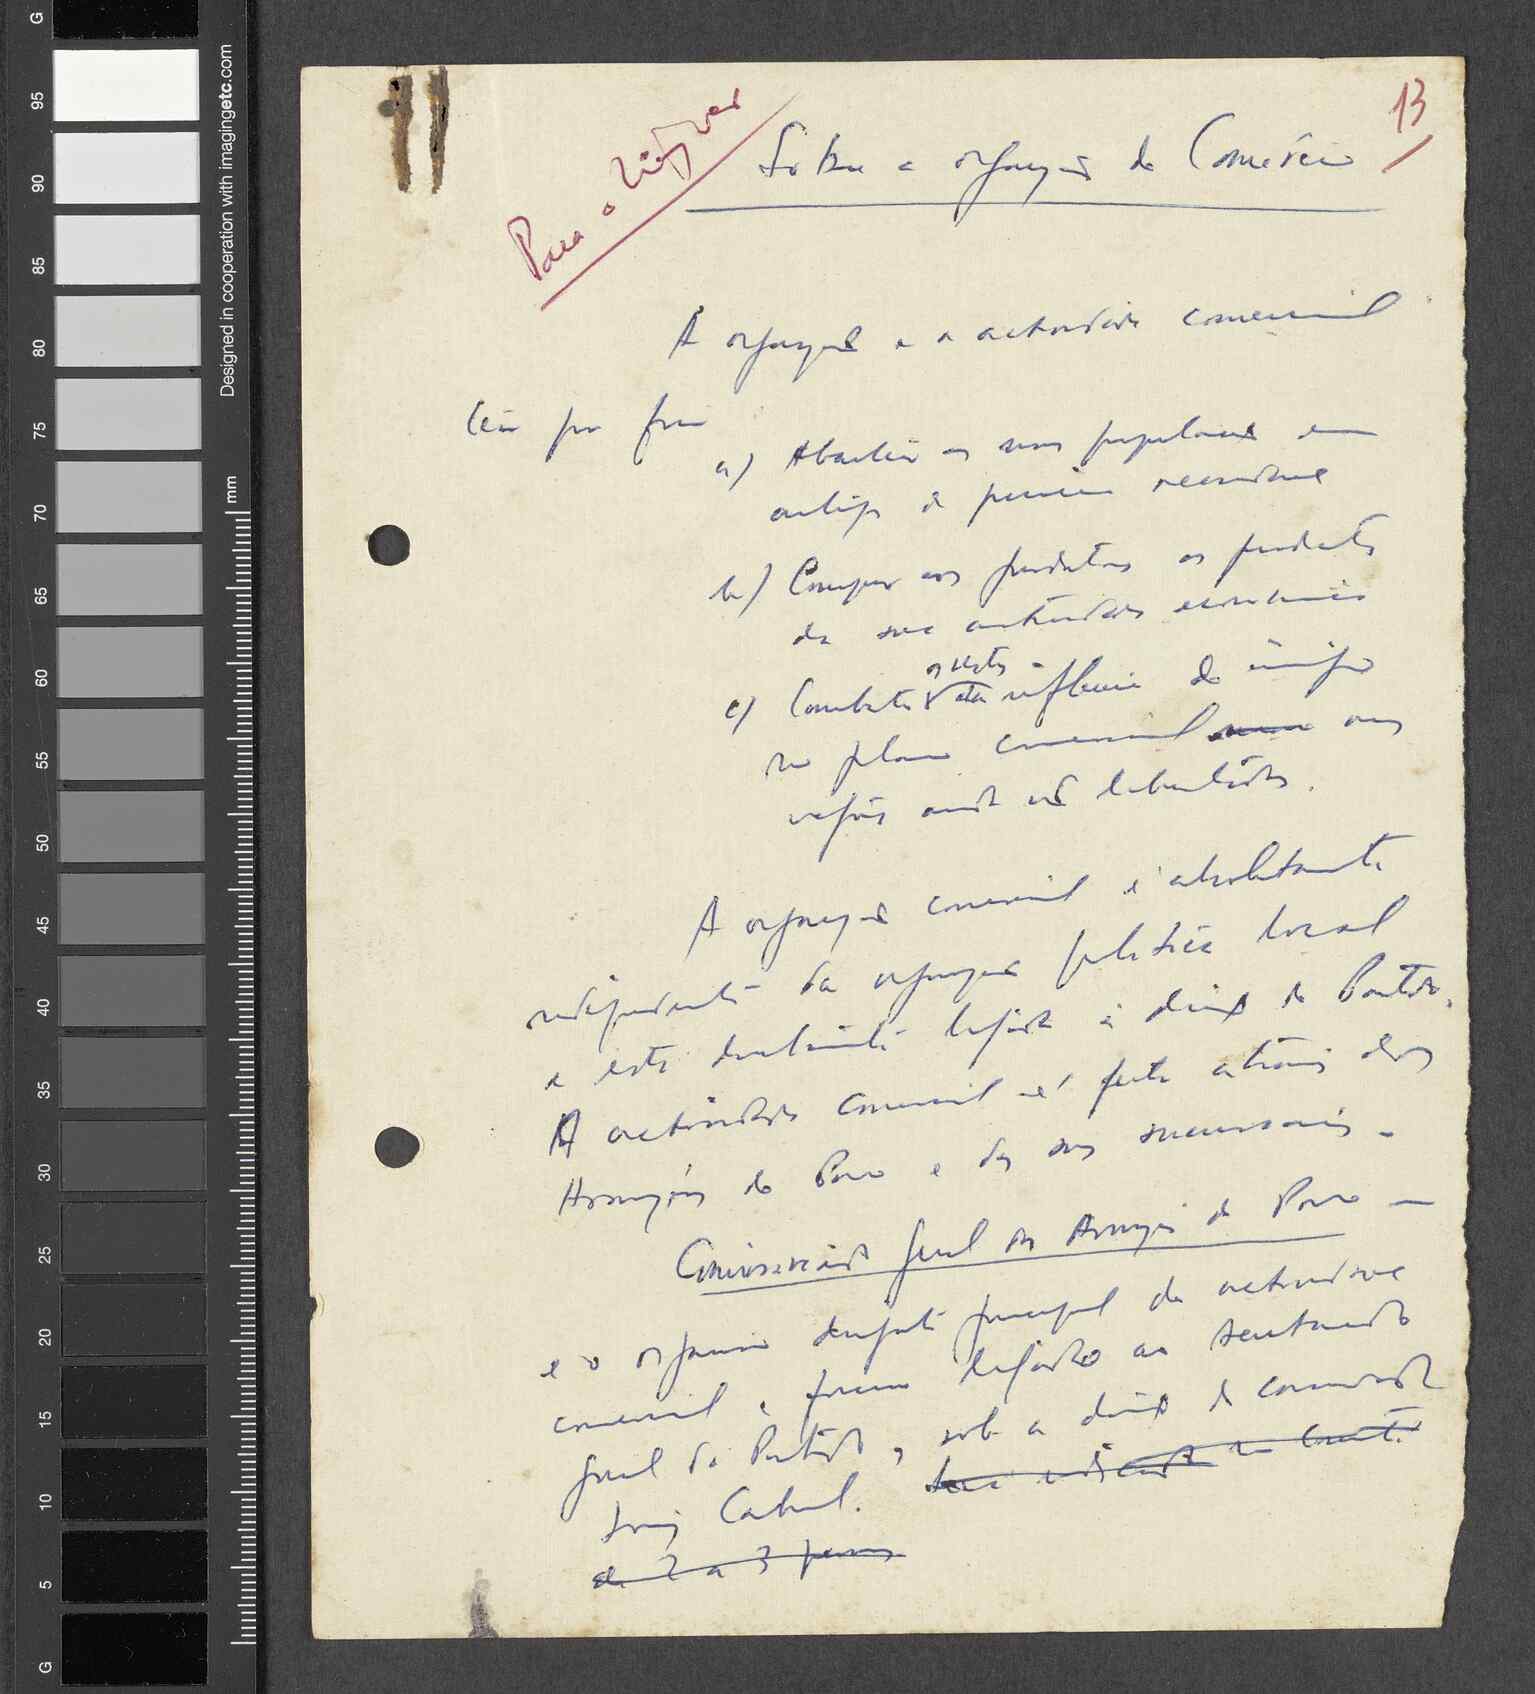 13
Para o Ziguinchor
Sobre a organização do Comércio
A organização e a actividade comercial
têm por fim
a) Abastecer as nossas populações em
artigos de primeira necessidade
b) Comprar aos produtores os produtos
da sua actividade económica
c) Combater os restos da influência do inimigo
no plano comercial nas
regiões ainda não libertadas.
A organização comercial é absolutamente
independente da organização política local
e está directamente ligada à direcção do Partido.
A actividade comercial é feita através dos
Armazéns do Povo e das suas sucursais.
Comissariado Geral dos Armazéns do Povo —
é o organismo dirigente principal da actividade
comercial e ligado ao Secretariado
Geral do Partido, sob a direcção do camarada
Luiz Cabral.
de 2 a 3 pessoas